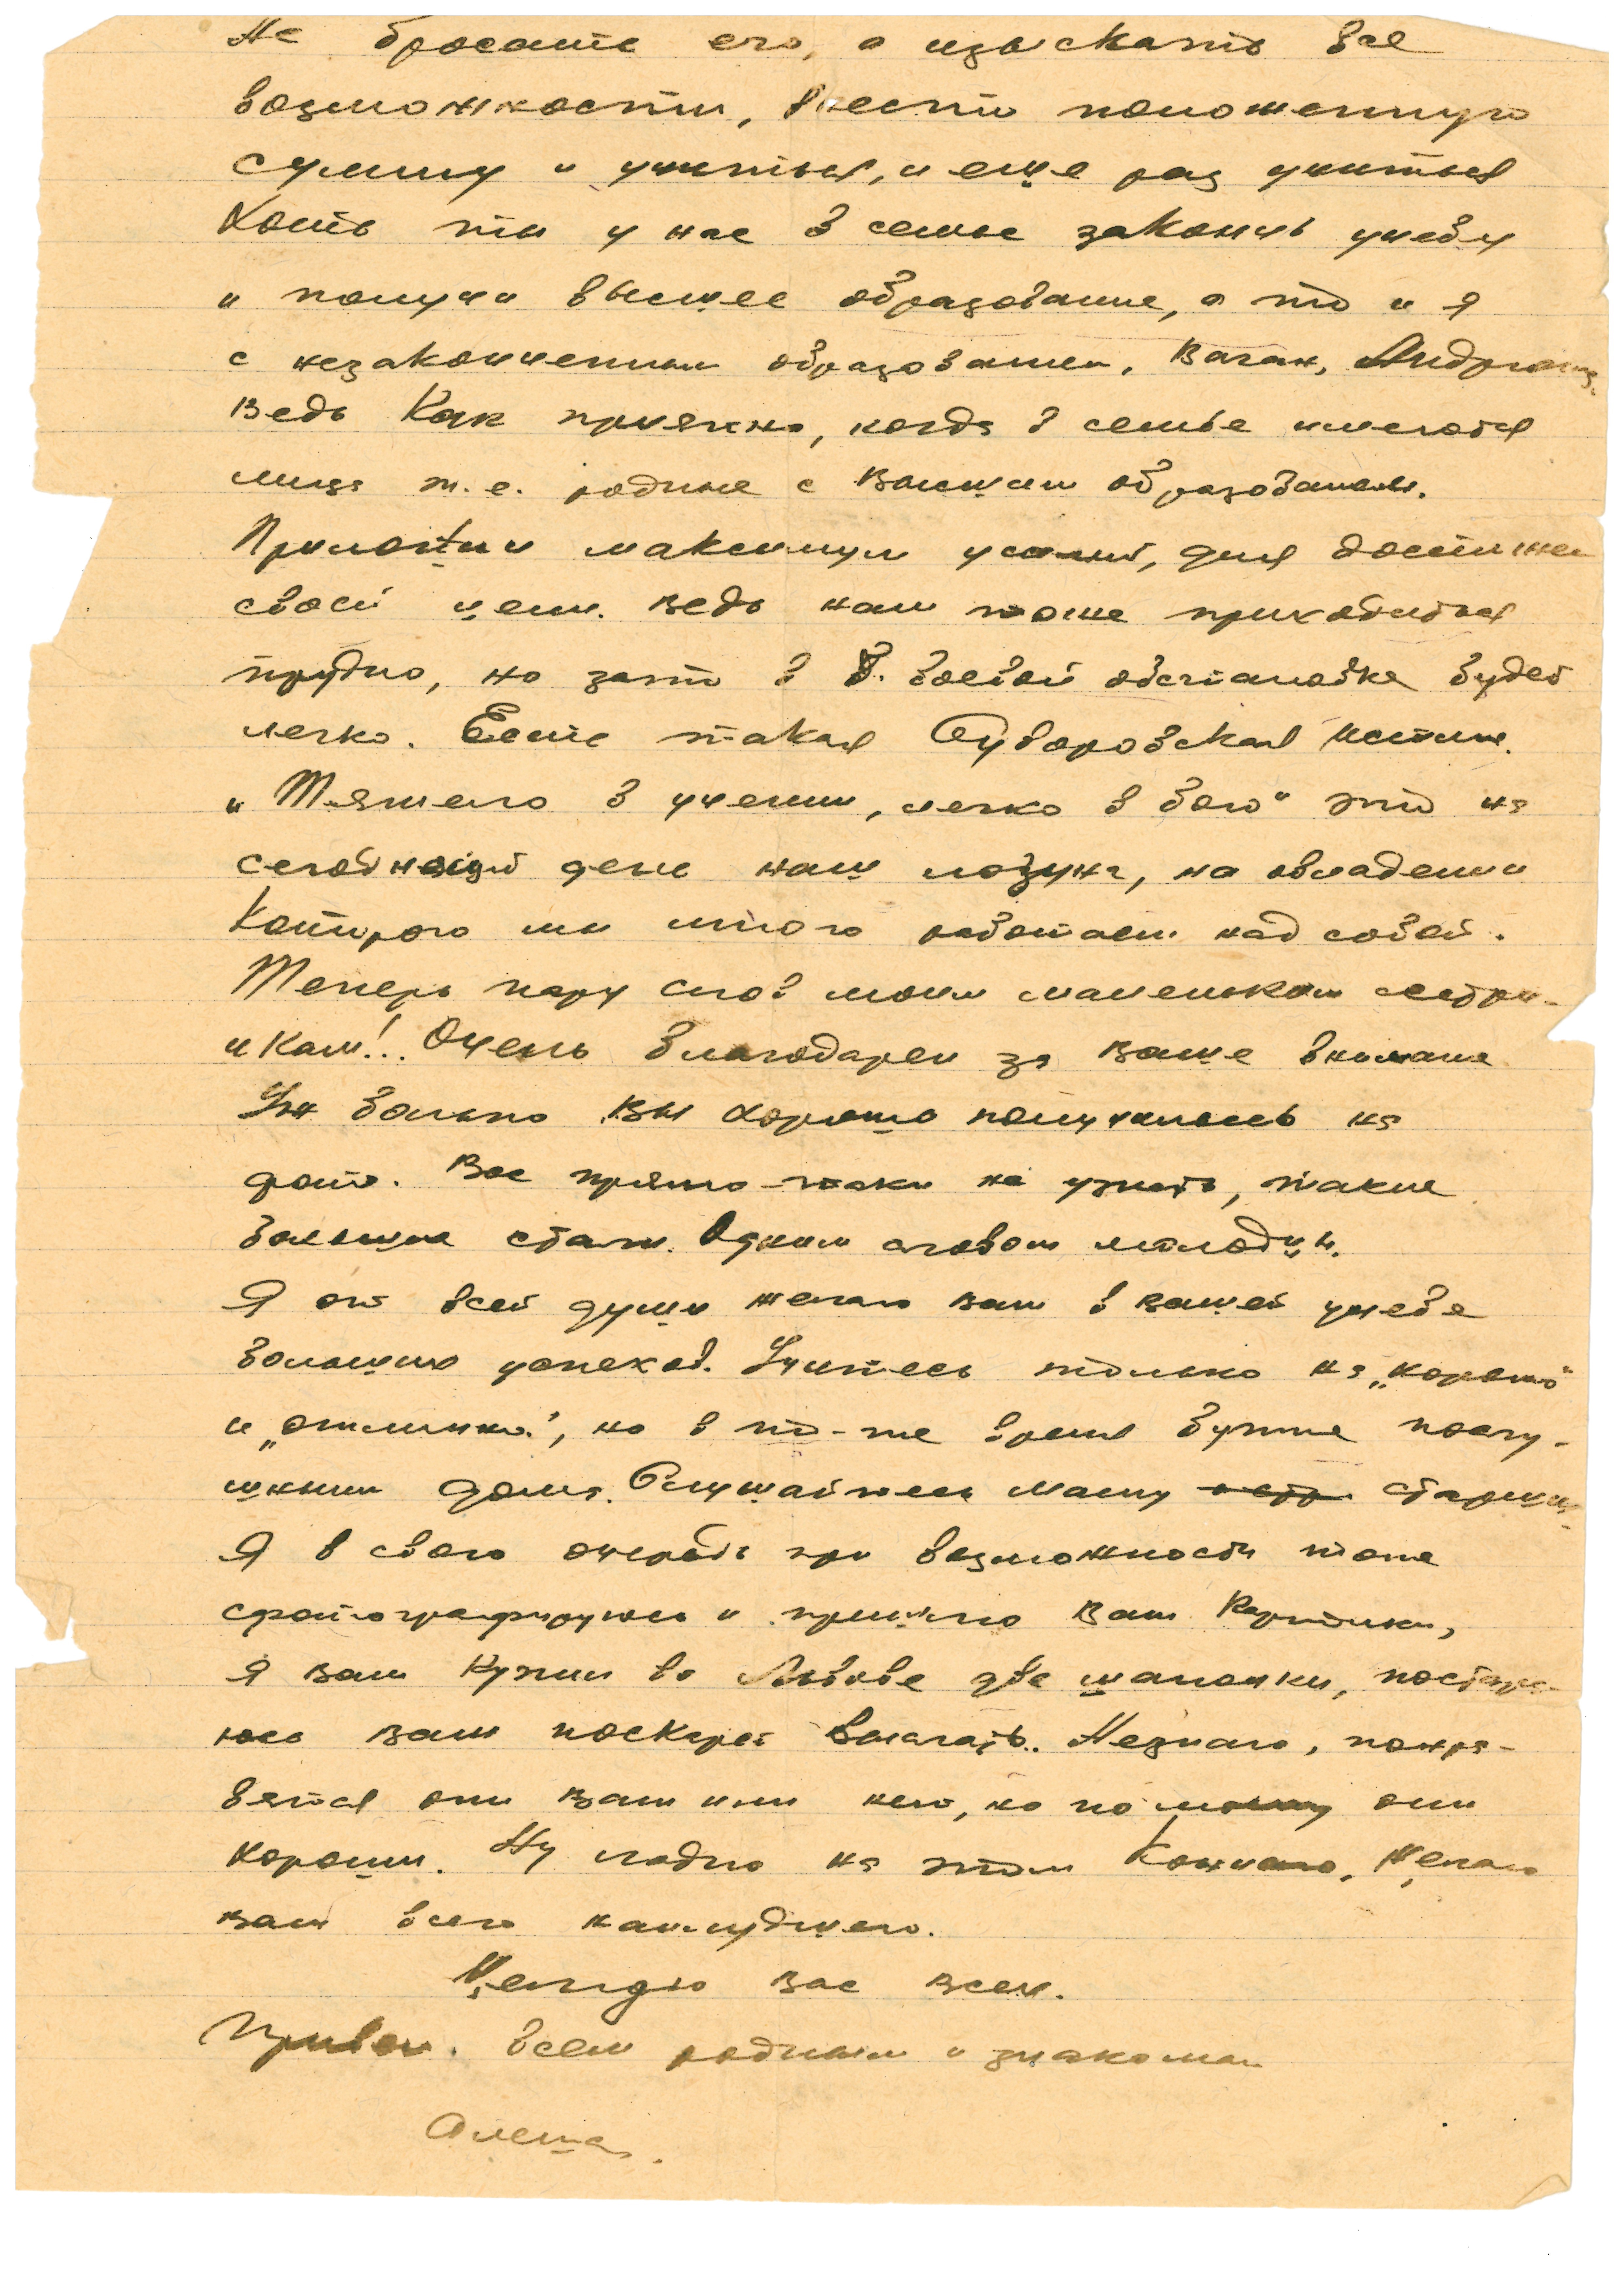 Не бросать его, а изыскать все
возможности, внести положенную
сумму и учиться, и еще раз учиться
Хоть ты у нас в семье закончь учебу
и получи высшее образование, а то и я
с незаконченным образованием, Ваган, Андрюша.
Ведь как приятно, когда в семье имеются
лица т.е. родные с высшим образованием.
Приложи максимум усилий, для достижен
своей цели. Ведь нам тоже приходиться
трудно, но зато в б. боевой обстановке будет
легко. Есть такая Суворовская истина.
„Тяжело в учении, легко в бою" это на
сегодняшний день наш лозунг, на овладении
которого мы много работаем над собой.
Теперь пару слов моим маленьким сестри-
чкам!.. Очень благодарен за ваше внимание
Уж больно вы хорошо получились на
фото. Вас прямо-таки не узнать, такие
большие стали. Одним словом молодцы.
Я от всей души желаю вам в вашей учебе
больших успехов. Учитесь только на „хорошо"
и „отлично", но в то-же время будьте послу-
шными дома. Слушайтесь маму старших
Я в свою очередь при возможности тоже
сфотографируюсь и пришлю вам карточки,
я вам купил во Львове две шапочки, постара-
юсь вам поскорей выслать. Незнаю, понра-
вятся они вам или нет, но по моему они
хороши. Ну ладно на этом кончаю, Желаю
вам всего наилудшего.
Целую вас всех.
Привет. всем родным и знакомым
Алеша.